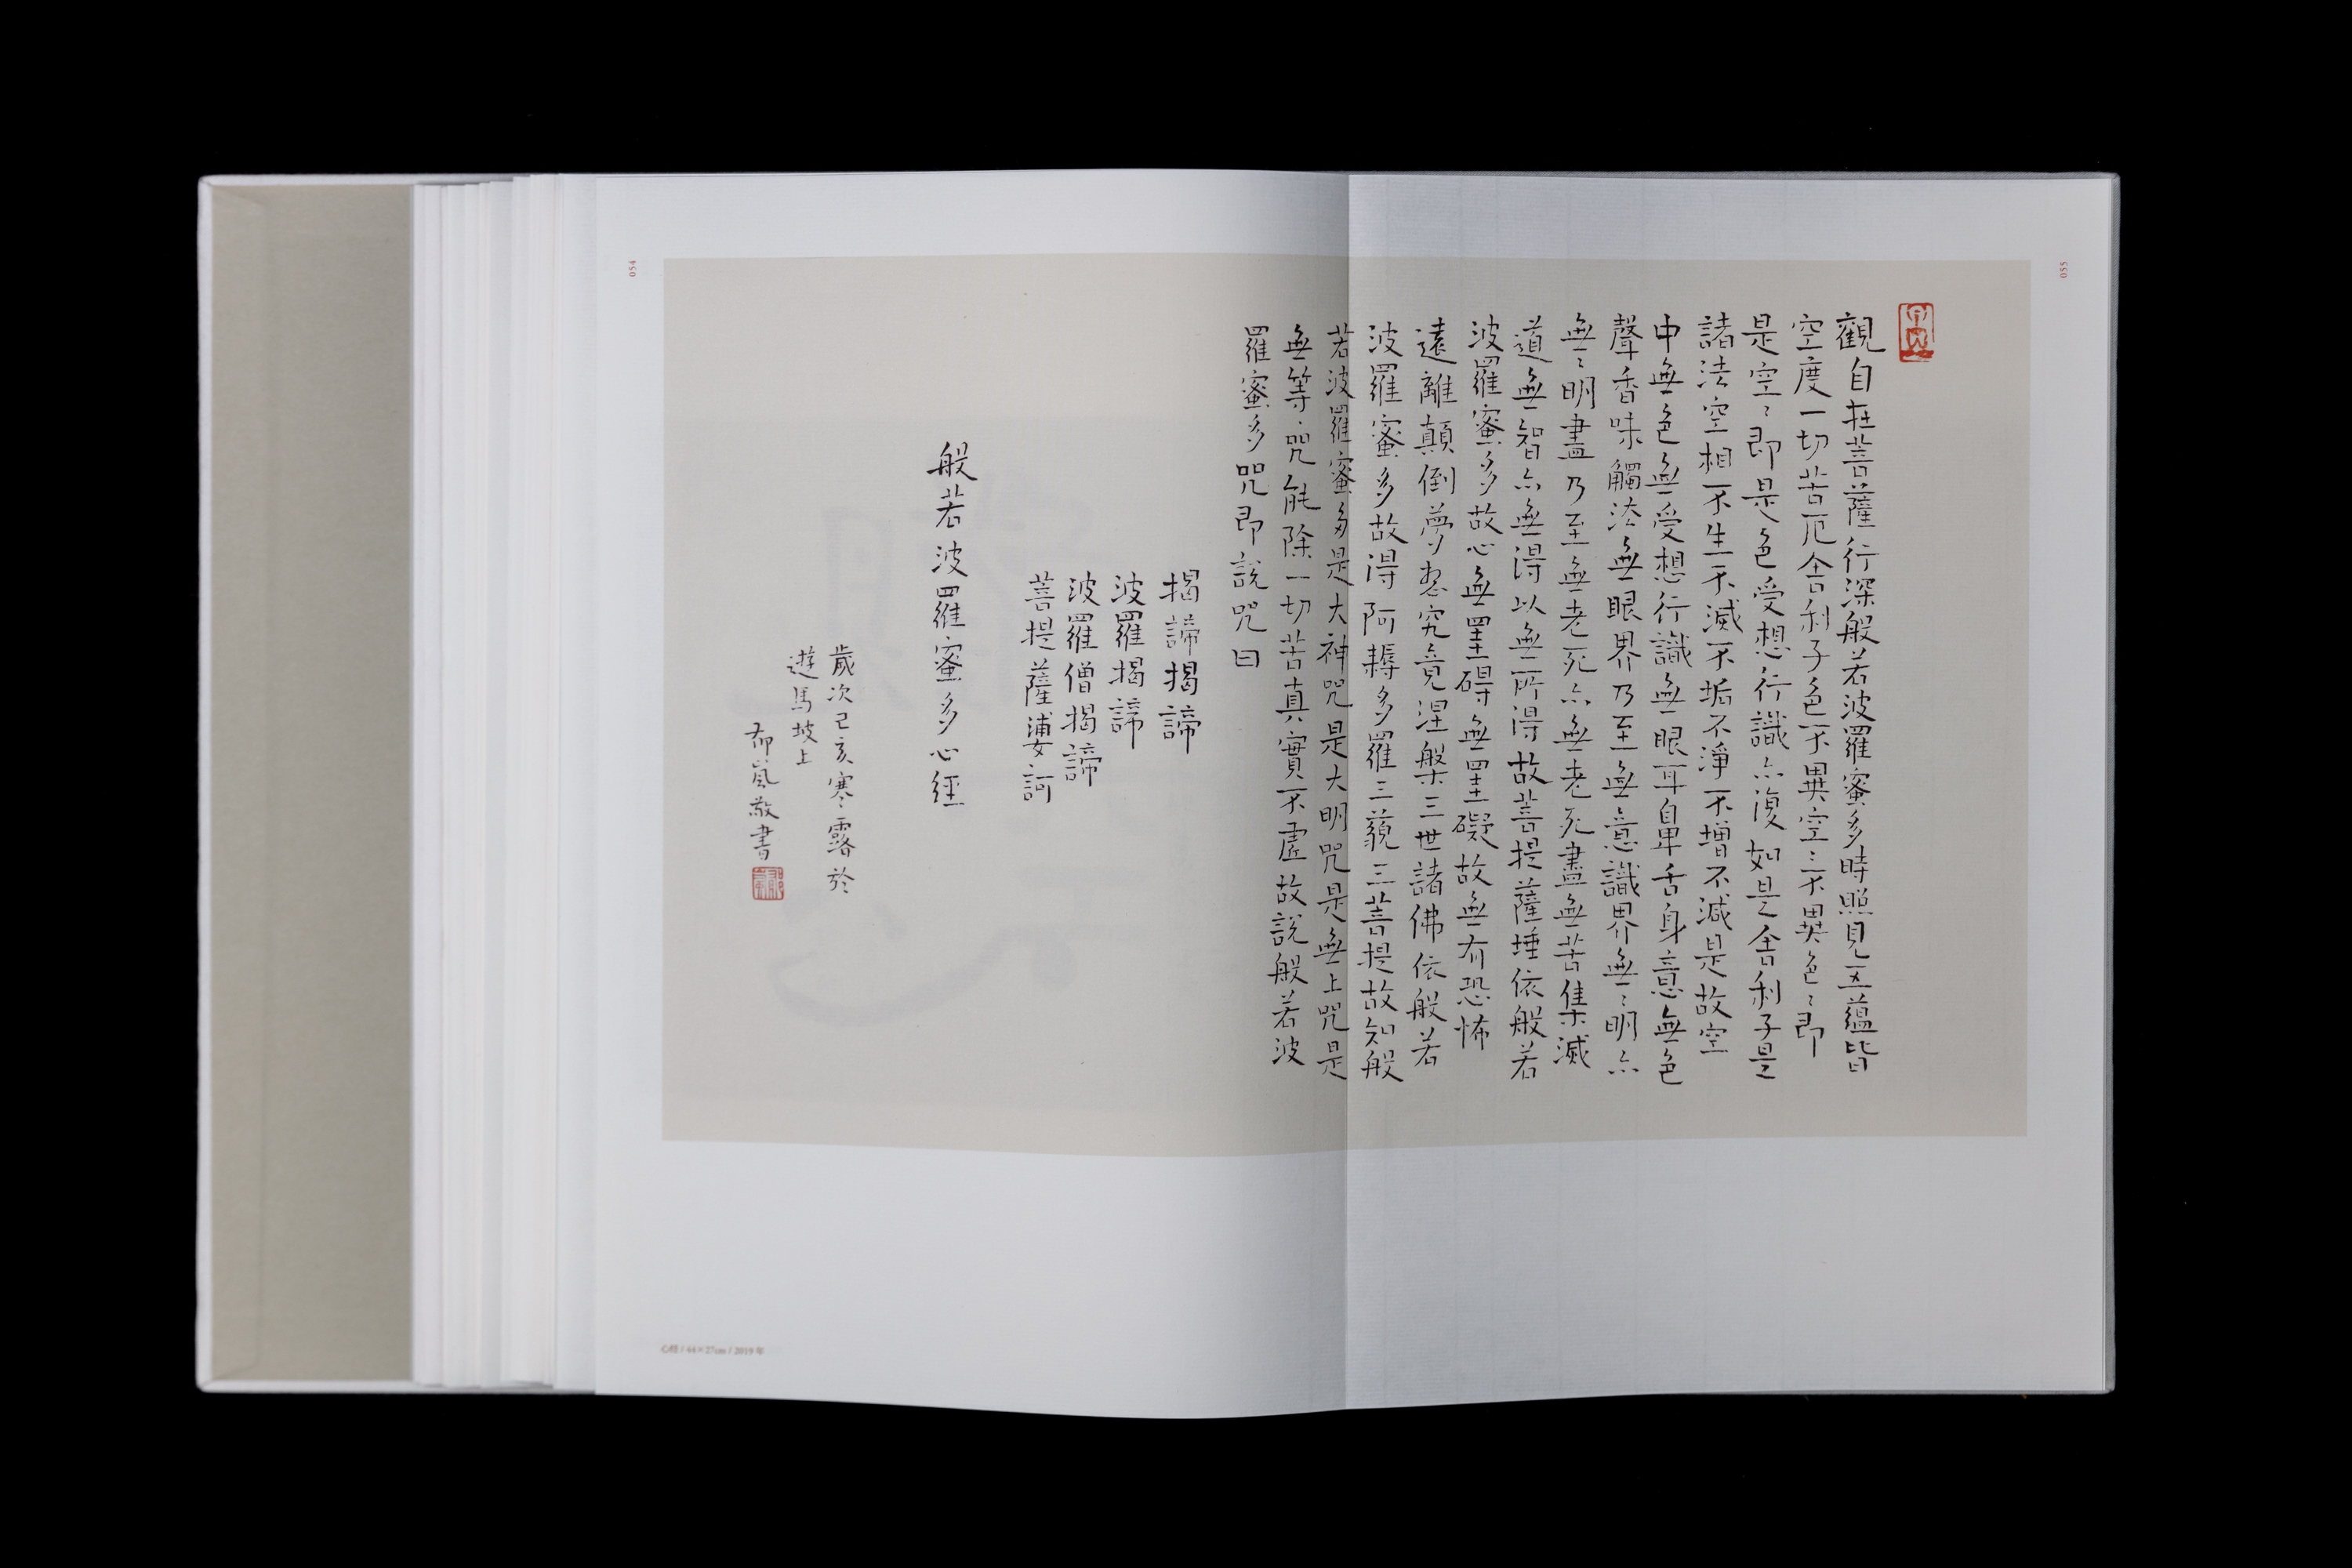 觀自在菩薩行深般若波羅蜜多時照見五蘊皆
空度一切苦厄舍利子色不異空〻不異色〻即
是空〻即是色受想行識亦復如是舍利子是
諸法空相不生不滅不垢不淨不增不減是故空
中無色無受想行識無眼耳鼻舌身意無色
聲香味觸法無眼界乃至無意識界無〻明亦
無〻明盡乃至無老死亦無老死盡無苦集滅
道無智亦無得以無所得故菩提薩埵依般若
波羅蜜多故心無罣碍無罣礙故無有恐怖
遠離顛倒夢想究竟涅槃三世諸佛依般若
波羅蜜多故得阿耨多羅三藐三菩提故知般
若波羅蜜多是大神咒是大明咒是無上咒是
無等〻咒能除一切苦真實不虛故說般若波
羅蜜多咒即說咒曰
揭諦揭諦
波羅揭諦
波羅僧揭諦
菩提薩婆訶
般若波羅蜜多心經
歲次己亥寒露於
遊馬坡上
郁嵐敬書
054
055
心经 / 44×27cm / 2019 年